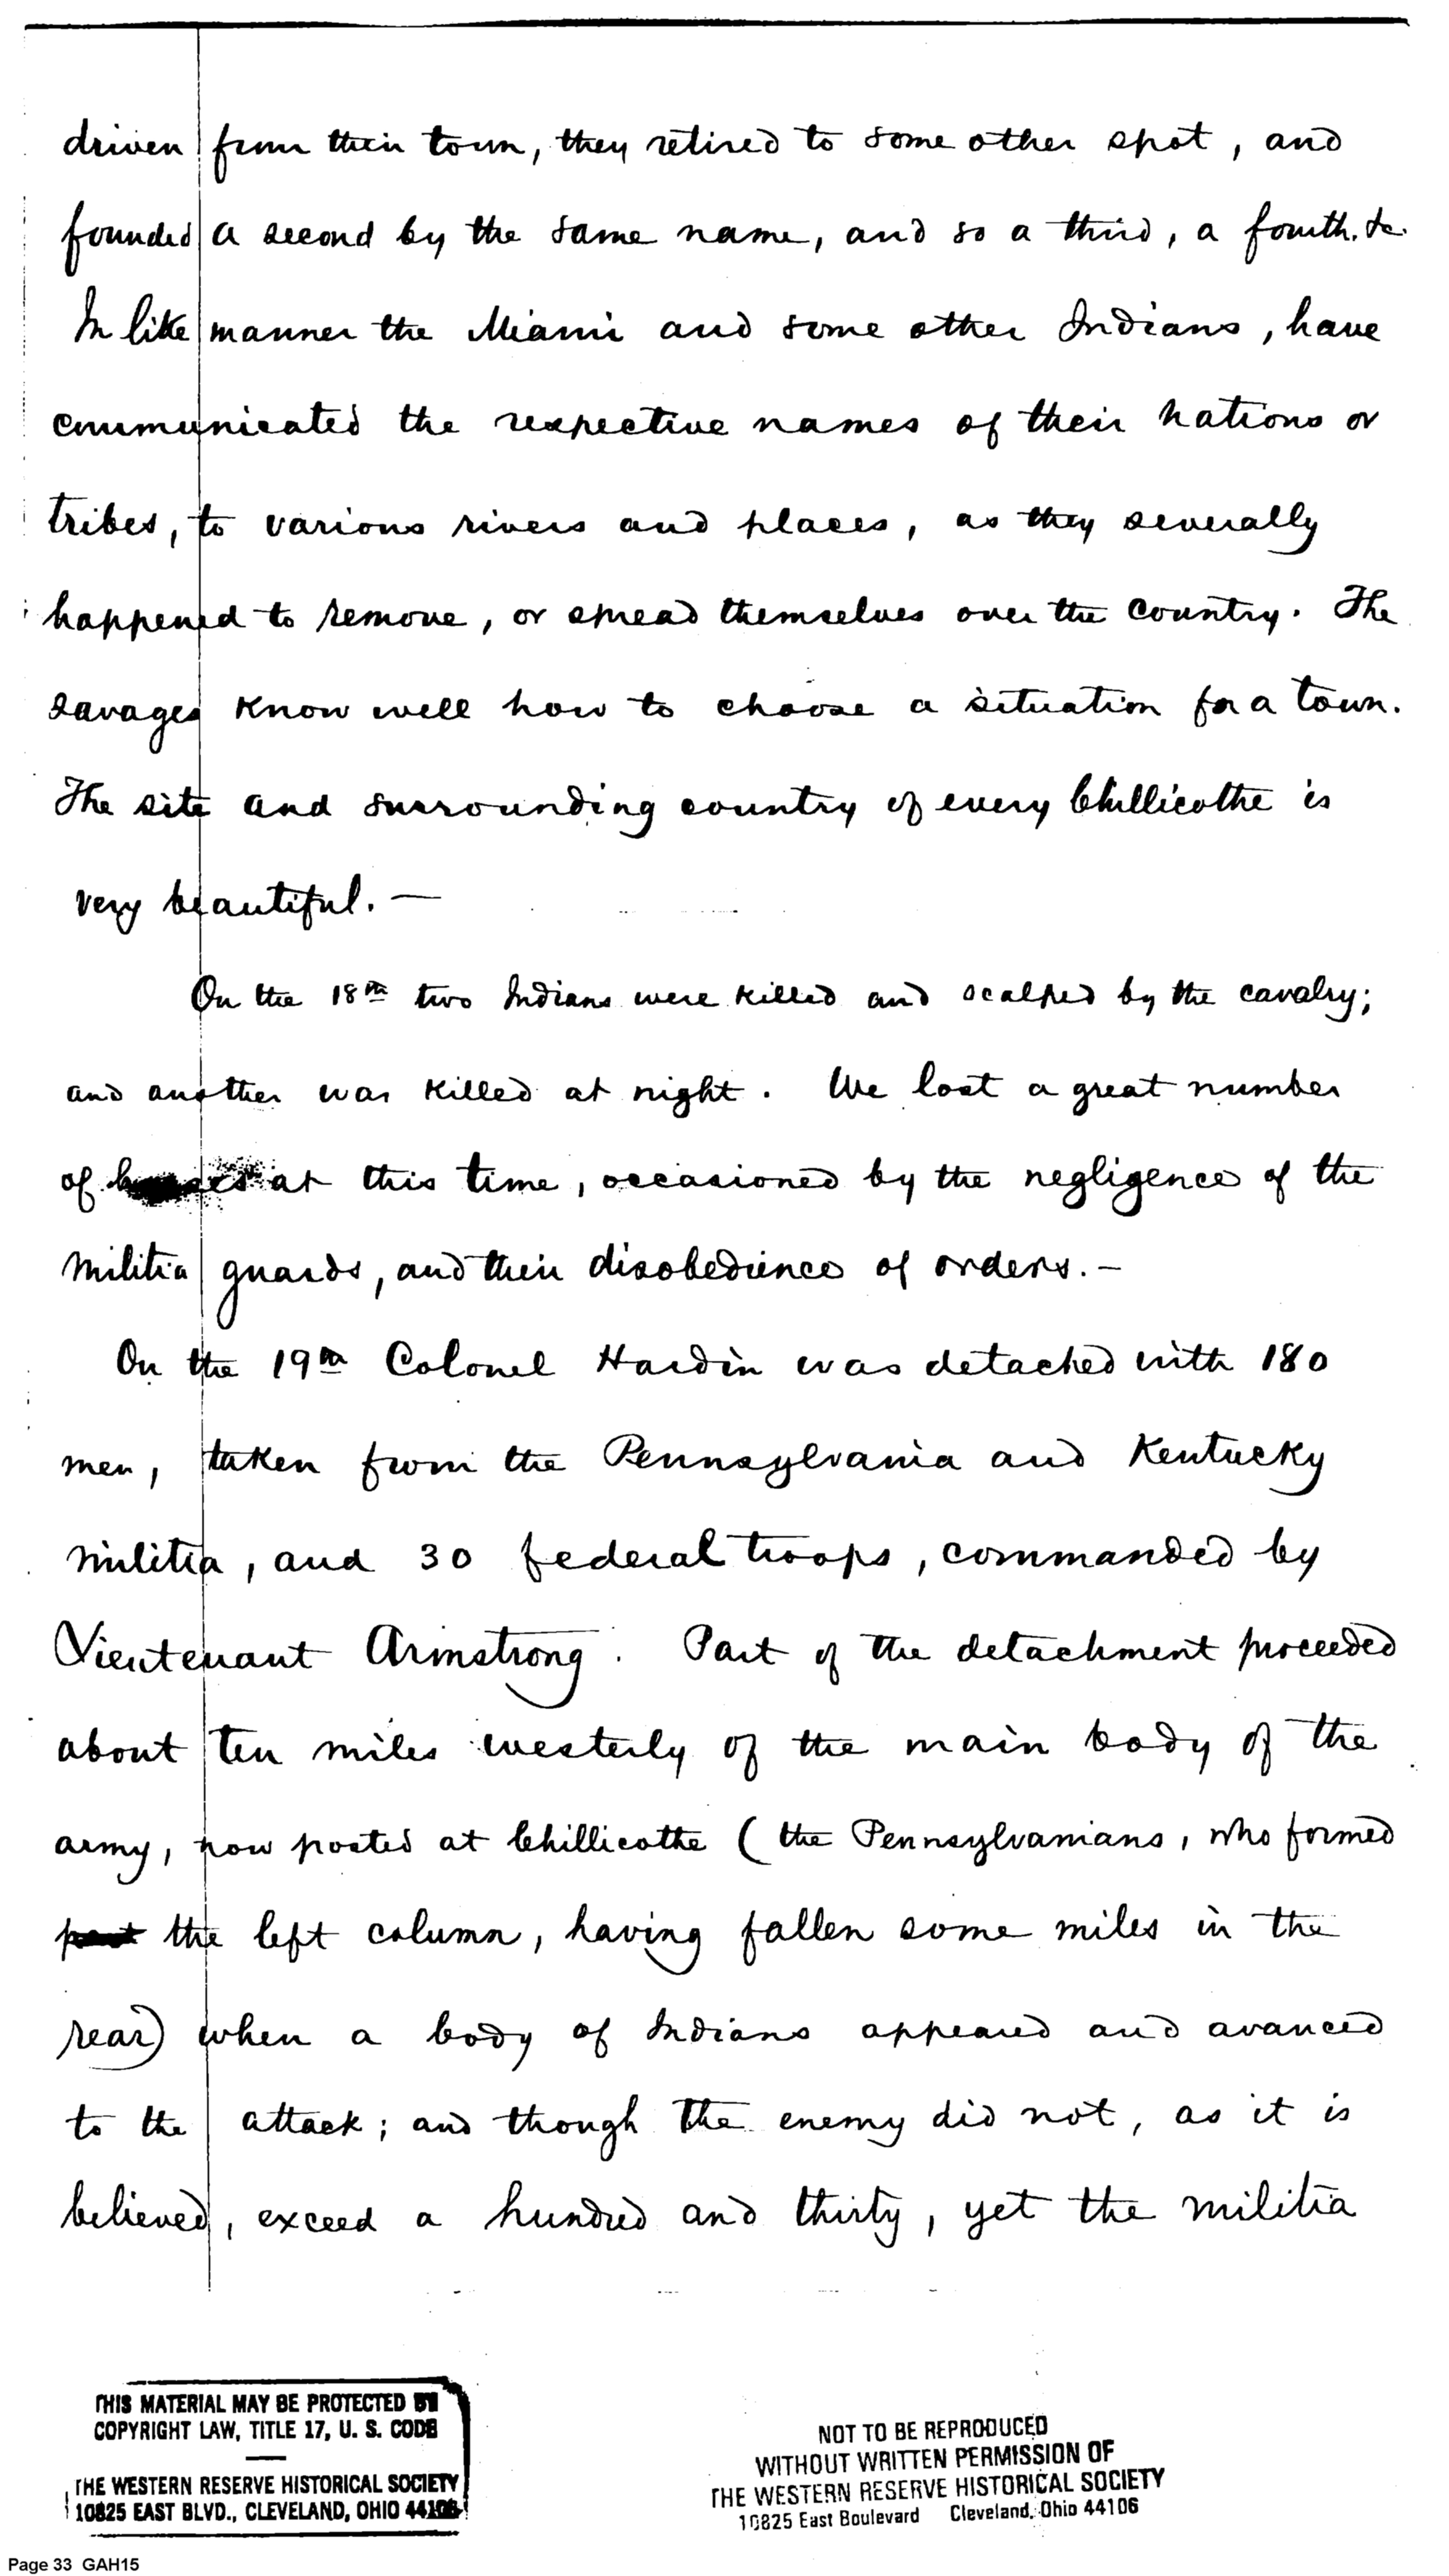 driven from their town, they retired to some other spot, and
founded a second by the same name, and so a third, a fourth. &c.
In like manner the Miami and some other Indians, have
communicated the respective names of their nations or
tribes, to various rivers and places, as they severally
happened to remove, or spread themselves over the country. The
savages know well how to choose a situation for a town.
The site and surrounding country of every Chillicothe is
very beautiful. —
On the 18th two Indians were killed and scalped by the cavalry;
and another was killed at night. We lost a great number
of horses at this time, occasioned by the negligence of the
militia guards, and their disobedience of orders. —
On the 19th Colonel Hardin was detached with 180
men, taken from the Pennsylvania and Kentucky
militia, and 30 federal troops, commanded by
Lieutenant Armstrong. Part of the detachment proceeded
about ten miles westerly of the main body of the
army, now posted at Chillicothe (the Pennsylvanians, who formed
part the left column, having fallen some miles in the
rear) when a body of Indians appeared and avanced
to the attack; and though the enemy did not, as it is
believed, exceed a hundred and thirty, yet the militia
THIS MATERIAL MAY BE PROTECTED BY
COPYRIGHT LAW, TITLE 17, U. S. CODE
THE WESTERN RESERVE HISTORICAL SOCIETY
10825 EAST BLVD., CLEVELAND, OHIO 44106
NOT TO BE REPRODUCED
WITHOUT WRITTEN PERMISSION OF
THE WESTERN RESERVE HISTORICAL SOCIETY
10825 East Boulevard Cleveland, Ohio 44106
Page 33 GAH15